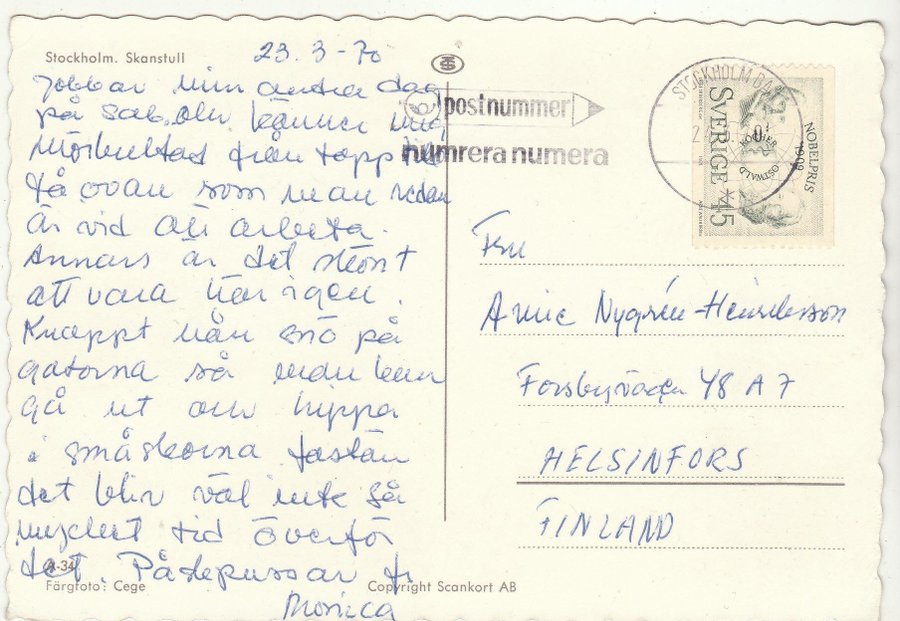 Stockholm. Skanstull
23.3-70
Jobbar min andra dag
på sab. och känner mig
mörbultad från topp till
tå ovan som man redan
är vid att arbeta.
Annars är det skönt
att vara här igen.
Knappt nån snö på
gatorna så man kan
gå ut och hippa
i småskorna fastän
det blir väl inte så
mycket tid överför
det. Påskpussar fr
Monica
A-34
Färgfoto: Cege
Copyright Scankort AB
postnummer
numrera numera
STOCKHOLM BAN
SVERIGE *45
NOBELPRIS
1909
OSTWALD
KOCHER
Fru
Annie Nygrén-Heinrihsson
Forsbyvägen 48 A 7
HELSINFORS
FINLAND